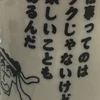 仕事ってのは
ラクじゃないけど
楽しいことも
あるんだ